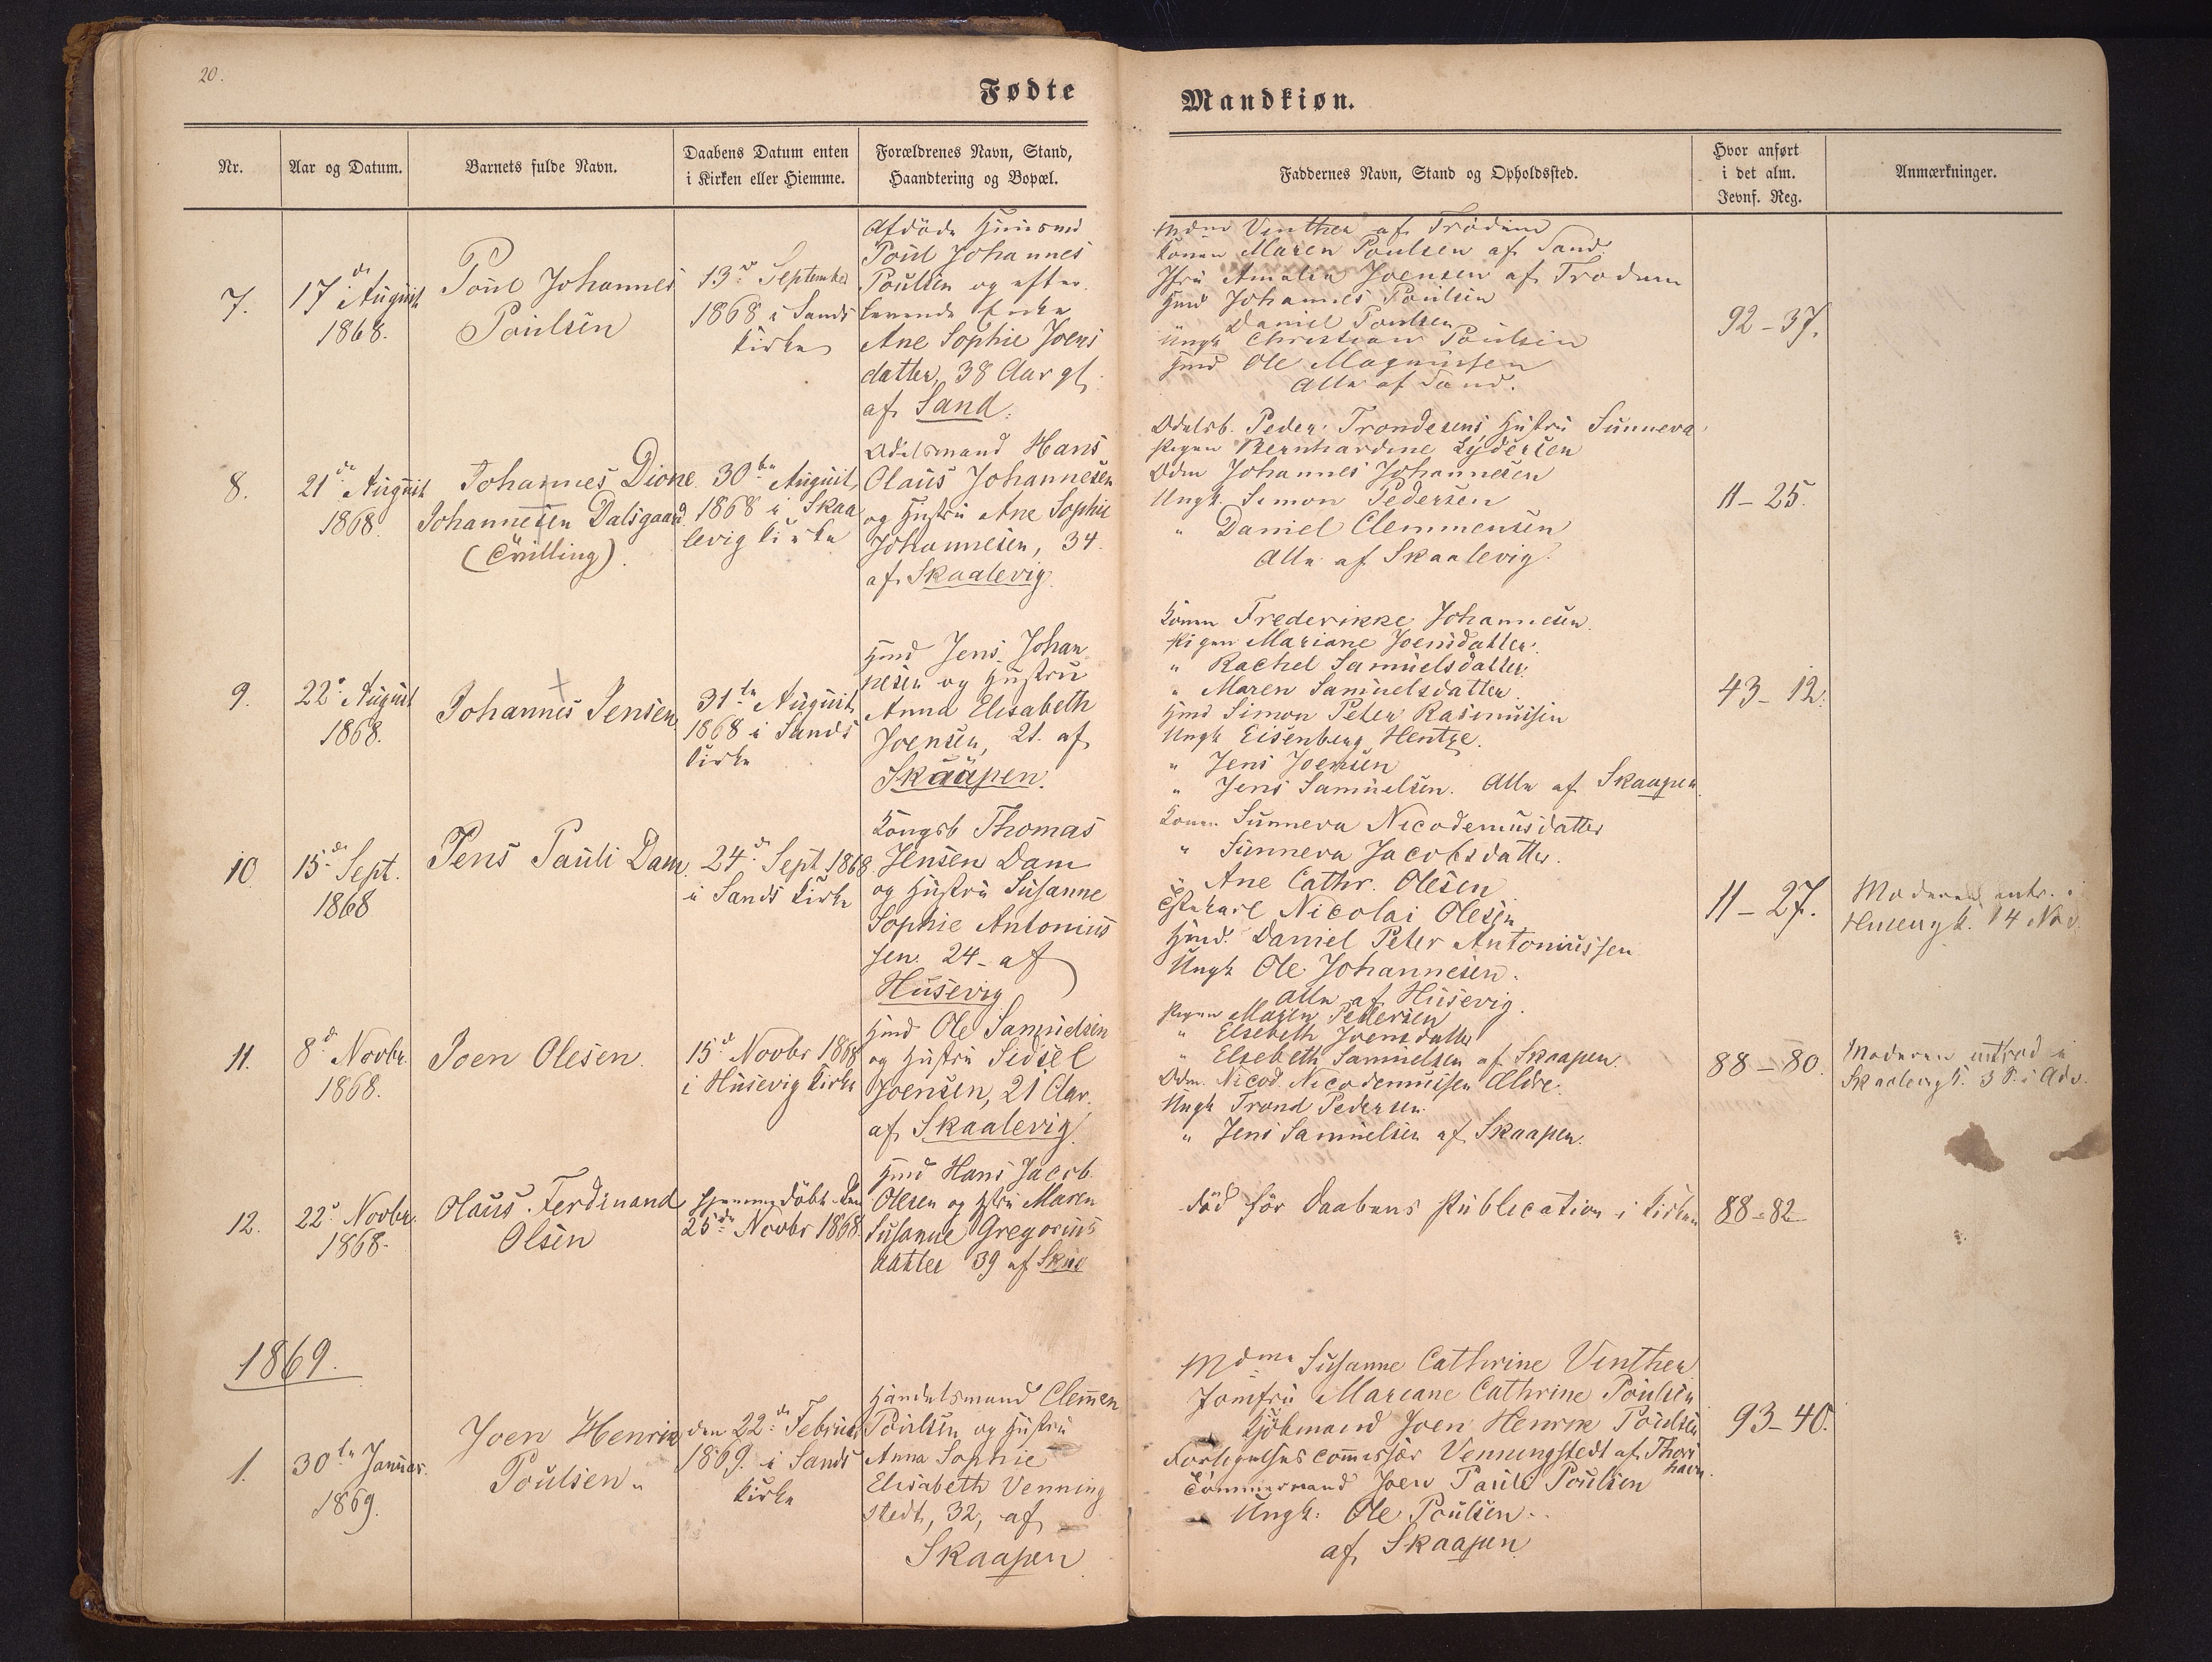 20.
Fødte
Mandkiøn.
Nr.
Aar og Datum.
Barnets fulde Navn.
Daabens Datum enten
i Kirken eller Hiemme.
Forældrenes Navn, Stand,
Haandtering og Bopæl.
Faddernes Navn, Stand og Opholdssted.
Hvor anført
i det alm.
Jevnf. Reg.
Anmærkninger.
7.
17de August
1868.
Poul Johannes
Poulsen
13de September
1868 i Sands
Kirke
Afdöde Huusmd
Poul Johannes
Poulsen og efter
levende Enke
Ane Sophie Joens
datter, 38 Aar gl.
af Sand.
Mdme Vinther af Trödum
Konen Maren Poulsen af Sand.
Jfru Amalia Joensen af Trodum
Hmd Johannes Poulsen
" Daniel Poulsen
Ungk Christian Poulsen
Hmd Ole Magnussen
Alle af Sand.
92-37.
8.
21de August
1868.
Johannes Dione
Johannesen Dalsgaard
(Tvilling).
30te August
1868 i Skaa
levig Kirke
Odelsmand Hans
Olaus Johannesen
og Hustru Ane Sophie
Johannesen, 34
af Skaalevig.
Odelsb. Peder Trondesens Hustru Sunneva
Pigen Bernhardine Lydersen
Odm Johannes Johannesen
Ungk. Simon Pedersen
" Daniel Clemmensen
Alle af Skaalevig.
11-25.
9.
22de August
1868.
Johannes Jensen
31te August
1868 i Sands
Kirke
Hmd Jens Johan
nesen og Hustru
Anna Elisabeth
Joensen, 21. af
Skaapen.
Konen Frederikke Johannesen.
Pigen Mariane Joensdatter.
" Rachel Samuelsdatter.
" Maren Samuelsdatter.
Hmd Simon Peter Rasmussen
Ungk Eisenberg Hentze.
" Jens Joensen
" Jens Samuelsen. Alle af Skaapen.
43-12.
10.
15de Sept.
1868
Jens Pauli Dam.
24de Sept. 1868
i Sands Kirke
Kongsb Thomas
Jensen Dam
og Hustru Susanne
Sophie Antonius
sen. 24- af
Husevig
Konen Sunneva Nicodemusdatter
" Sunneva Jacobsdatter.
" Ane Cathr. Olesen
Nicolai Olesen
Hmd. Daniel Peter Antoniussen
Ungk Ole Johannesen.
Alle af Husevig.
11-27.
Moderen intr. i
Husevig K. 14 Nov.
11.
8de Novbr.
1868.
Joen Olesen.
15de Novbr 1868
i Husevig Kirke
Hmd Ole Samuelsen
og Hustru Sidsel
Joensen, 21 Aar.
af Skaalevig.
Pigen Maren Pedersen
" Elsebeth Joensdatter
" Elsebeth Samuelsen af Skaapen.
Odm. Nicod. Nicodemussen Ældre.
Ungk Trond Pedersen.
" Jens Samuelsen af Skaapen.
88-80.
Moderen introd i
Skaalevig K. 3 S. i Adv.
12.
22de Novbr.
1868.
Olaus Ferdinand
Olsen
hjemmedöbt den
25de Novbr 1868.
Hmd Hans Jacob
Olesen og Hstru Maren
Susanne Gregorius
datter 39 af Skuo
död för Daabens Publication i Kirken
88-82
1869.
1.
30te Januar.
1869.
Joen Henrik
Poulsen.
den 22de Februar
1869. i Sands
Kirke
Handelsmand Clemen
Poulsen og Hustru
Anna Sophie
Elisabeth Venning
stedt, 32, af
Skaapen.
Mdme Susanne Cathrine Vinther
Jomfru Mariane Cathrine Poulsen
Kjöbmand Joen Henrik Poulsen
Forligelsescommissær Venningstedt af Thors
havn.
Tömmermand Joen Pauli Poulsen
Ungk: Ole Poulsen.
af Skaapen
93-40.